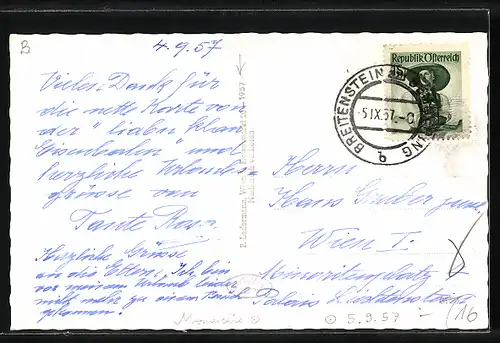 B
4.9.57
Vielen Dank für
die nette Karte von
der "lieben kleinen
Eisenbahn" und
herzliche Urlaubs-
grüsse von
Tante Resa.
Herzliche Grüsse
an die Eltern, Ich bin
vor meinem Urlaub leider
nicht mehr zu einem Besuch
gekommen!
P. Ledermann, Wien
1957
Republik Österreich
BREITENSTEIN
-5.IX.57.-
b
Herrn
Hans Gruber jun.
Wien I.
Minoritenplatz 4
Palais Liechtenstein
5.9.57
16